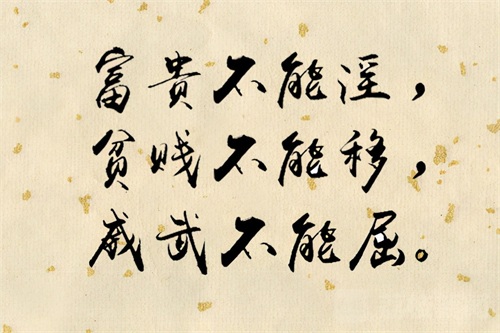 富貴不能淫，
贫贱不能移，
威武不能屈。